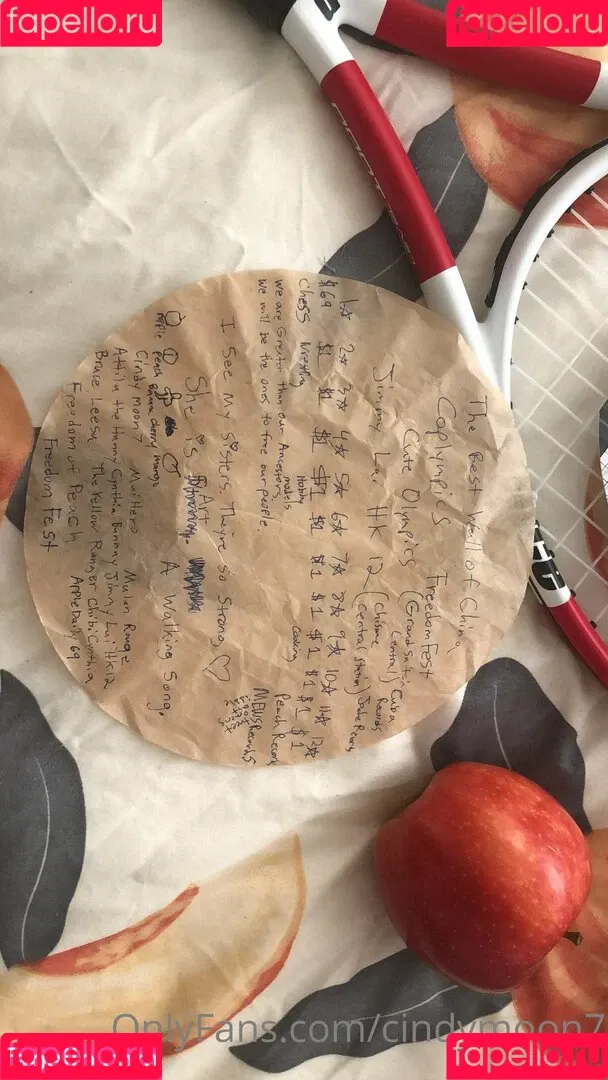 fapello.ru
fapello.ru
The Best Wall of China,
Coplympics FreedomFest
Cute Olympics (Grand Satin Central) Cuba Records
Jimmy Lai HK 12 (Chisme Central Station) Jade Peony
1☆ 2☆ 3☆ 4☆ 5☆ 6☆ 7☆ 8☆ 9☆ 10☆ 11☆ 12☆
$69 $1 $1 $1 $1 $1 $1 $1 $1 $1 $1 $1
Chess Wrestling models Hobby Cooking Peach Record
We are Greater than our Ancestors,
We will be the ones to free our people.
MEWS Records
I See My Sisters. They're so Strong. ♡
She is Art A Walking Song.
Apple Peach Banana cherry mango
Cindy Moon 7 Muihero Mulan Rouge
Attila the Hunny Cynthia Bunnay Jimmy Lai HK12
Bruce Leesa The Yellow Ranger Chibi Cynthia
Freedom of Peach Apple Daily 69
Freedom Fest
OnlyFans.com/cindymoon7
fapello.ru
fapello.ru